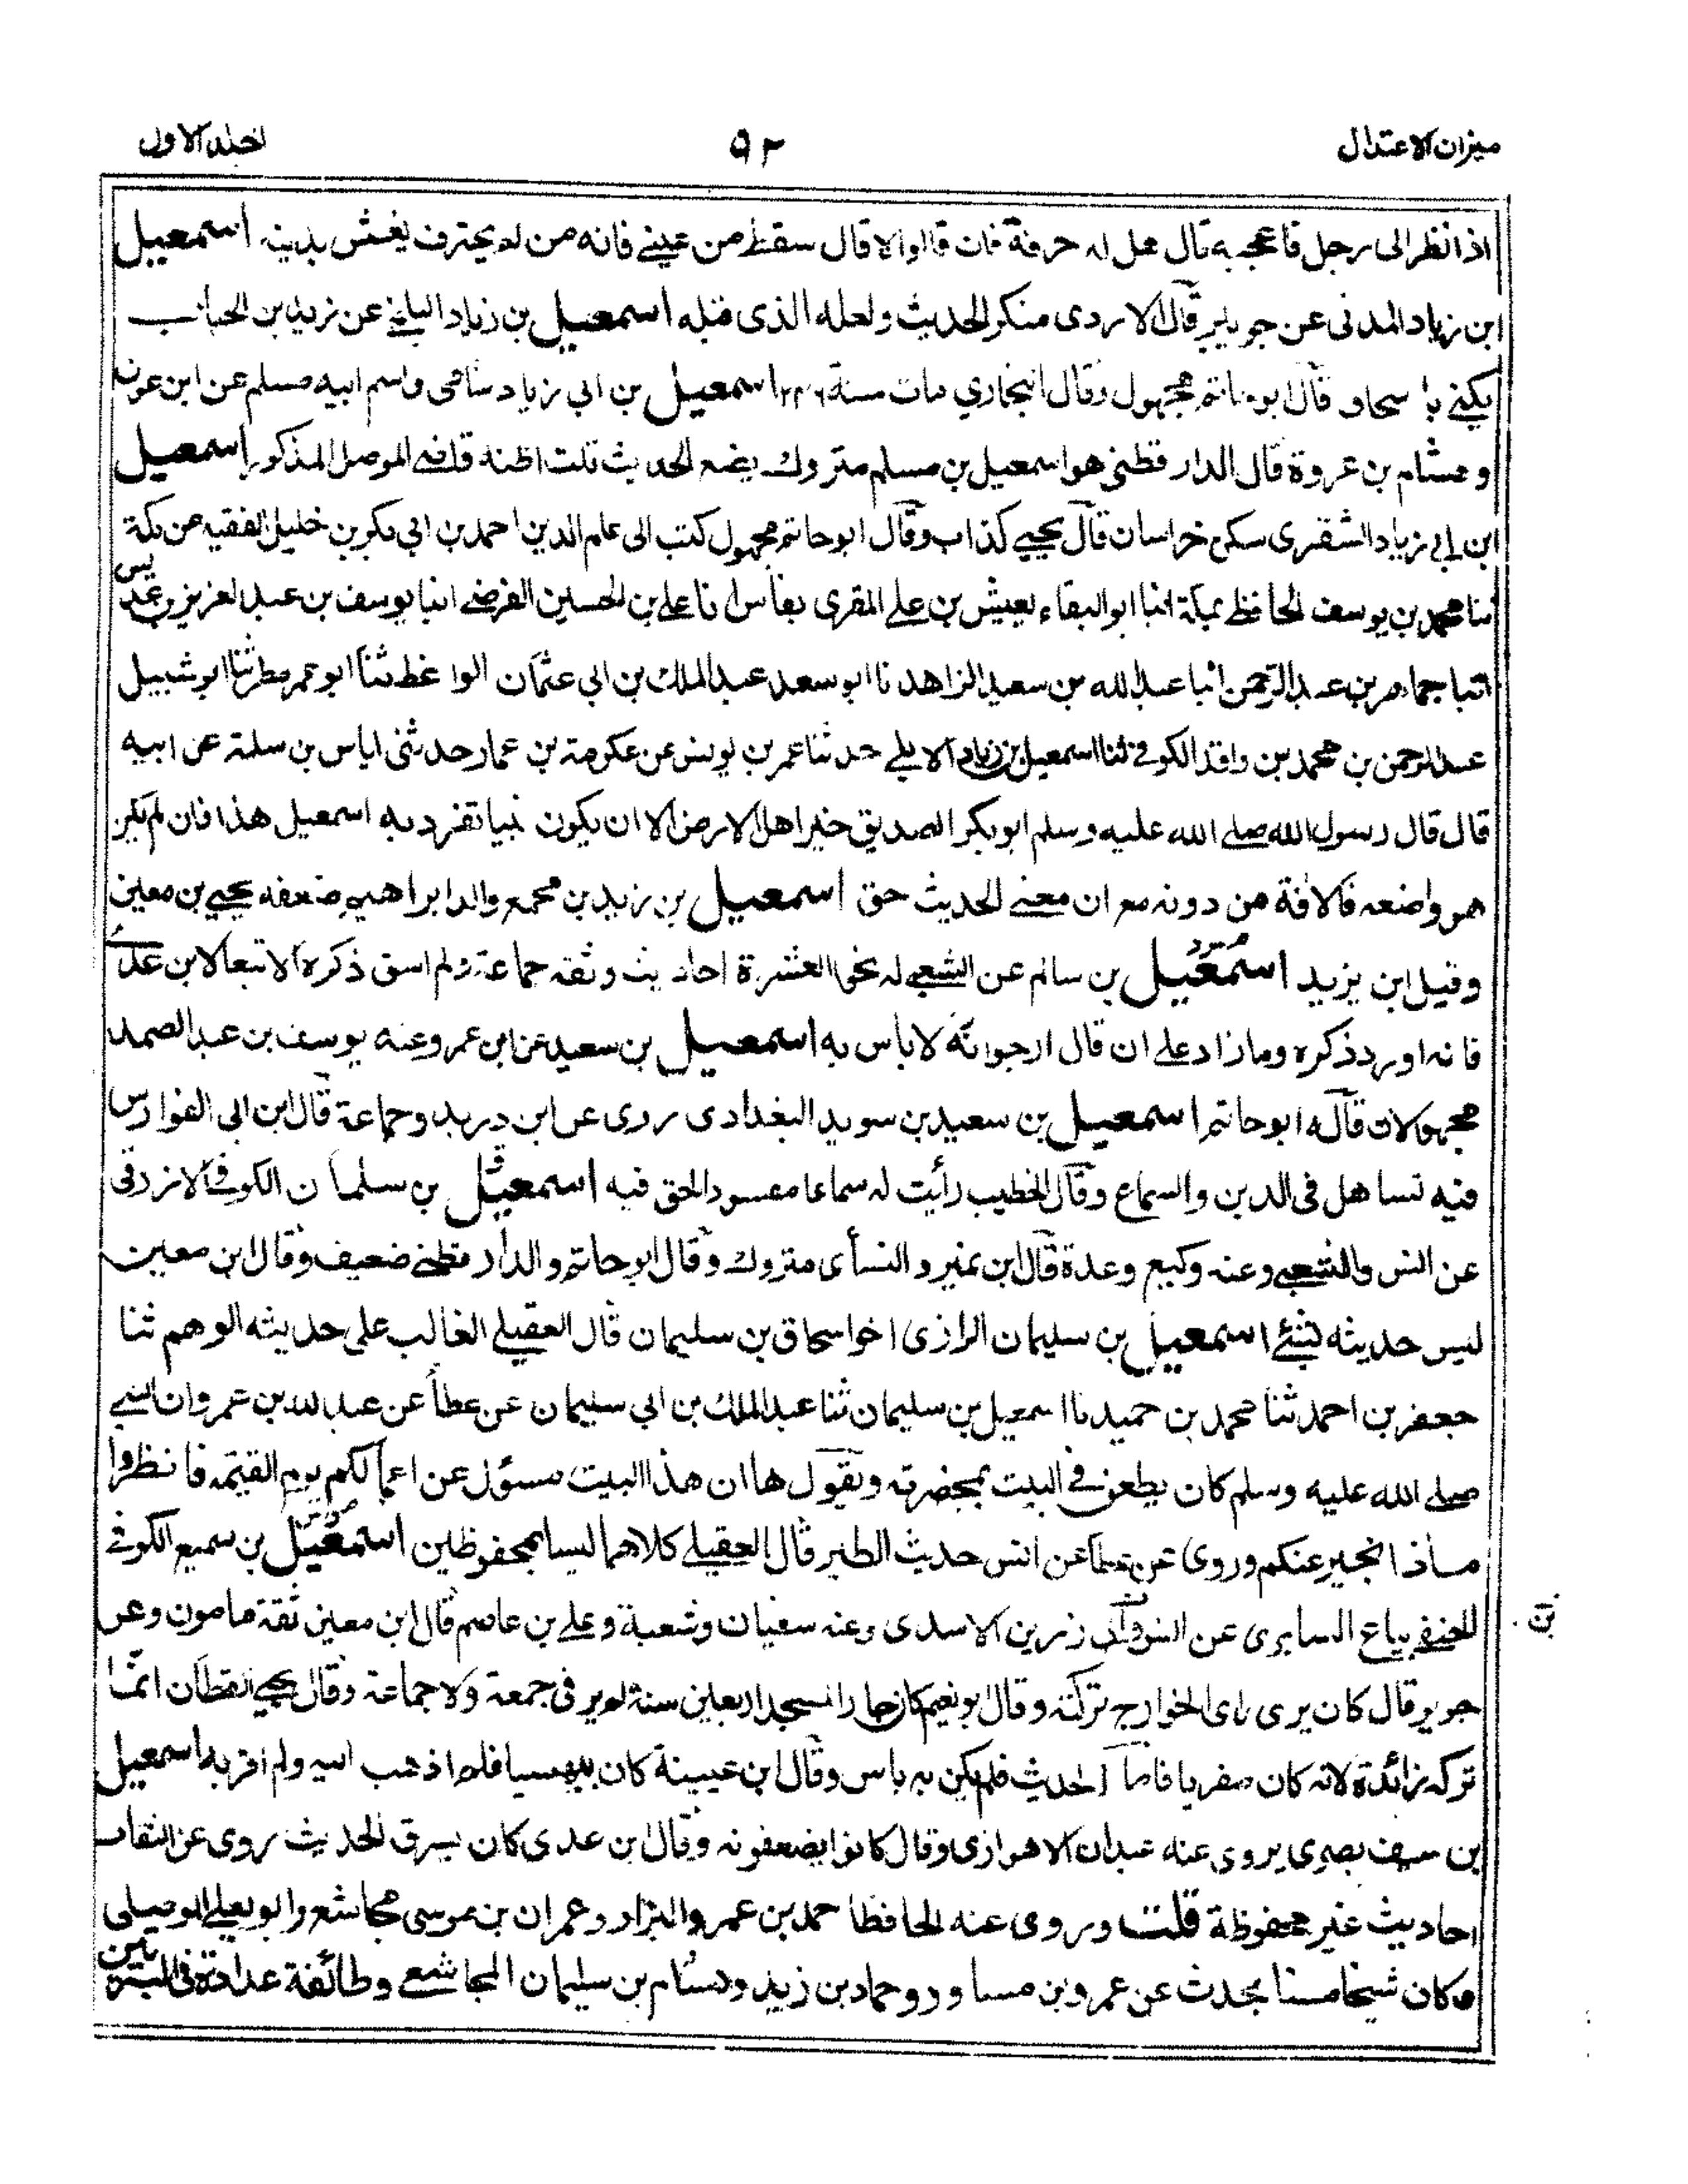 ميزان الاعتدال ٩٢ الجلد الاول
اذا نظر الى رجل فاعجبه قال هل له حرفة فان قالوا لا قال سقط من عيني فانه من لم يحترف يغش بدينه اسمعيل
ابن زياد المدنى عن جويبر قال الازدى منكر الحديث ولعله الذى قبله اسمعيل بن زياد البلخي عن زيد بن الحباب
يكنى با سحاق قال ابو حاتم مجهول وقال البخاري مات سنة ٢٤٦ اسمعيل بن ابي زياد شامى واسم ابيه مسلم عن ابن عون
وهشام بن عروة قال الدار قطنى هو اسمعيل بن مسلم متروك يضع الحديث قلت اظنه قاضي الموصل المذكور اسمعيل
ابن ابى زياد الشقرى سكن خراسان قال يحيي كذاب وقال ابو حاتم مجهول كتب الى علم الدين احمد بن ابي بكر بن خليل الفقيه من مكة
ثنا محمد بن يوسف الحافظ بمكة انبا ابو البقاء يعيش بن علي المقرى بفاس انا علي بن الحسين الفرضي انبا يوسف بن عبد العزيز بن عديس
انبا جماهر بن عبد الرحمن انبا عبد الله بن سعيد الزاهد نا ابو سعد عبد الملك بن ابي عثمان الواعظ ثنا ابو عمر مطر ثنا ابو شبيل
عبد الرحمن بن محمد بن واقد الكوفي ثنا اسمعيل بن زياد الايلي حدثنا عمر بن يونس عن عكرمة بن عمار حدثنى اياس بن سلمة عن ابيه
قال قال رسول الله صلي الله عليه وسلم ابو بكر الصديق خير اهل الارض الا ان يكون نبيا تفرد به اسمعيل هذا فان لم يكن
هو واضعه فالافة من دونه مع ان معنى الحديث حق اسمعيل بن زيد بن مجمع والد ابراهيم ضعفه يحيي بن معين
وقيل ابن يزيد اسمعيل بن سالم عن الشعبي له نحو العشرة احاديث وثقه جماعة ولم اسق ذكره الا تبعا لابن عدي
فانه اورد ذكره وما زاد علي ان قال ارجو انه لا باس به اسمعيل بن سعيد عن ابن عمر وعنه يوسف بن عبد الصمد
مجهولان قاله ابو حاتم اسمعيل بن سعيد بن سويد البغدادى روى عن ابن دريد وجماعة قال ابن ابي الفوارس
فيه تساهل فى الدين والسماع وقال الخطيب رأيت له سماعا مفسود الحق فيه اسمعيل بن سلمان الكوفي الازرقى
عن انس والشعبي وعنه وكيع وعدة قال ابن نمير و النسأى متروك وقال ابو حاتم والدار قطني ضعيف وقال ابن معين
ليس حديثه بشئ اسمعيل بن سليمان الرازى اخو اسحاق بن سليمان قال العقيلي الغالب على حديثه الوهم ثنا
جعفر بن احمد ثنا محمد بن حميد نا اسمعيل بن سليمان ثنا عبد الملك بن ابي سليمان عن عطأ عن عبد الله بن عمرو ان النبي
صلي الله عليه وسلم كان يطعن في البيت بمخضرته ويقول ها ان هذا البيت مسؤل عن اعمالكم يوم القيمة فانظروا
ماذا يخبر عنكم وروى عن عطأ عن انس حديث الطير قال العقيلي كلاهما ليسا بمحفوظين اسمعيل بن سميع الكوفي
الحنفي بياع السابرى عن انس و ابى زرين الاسدى وعنه سفيان وشعبة وعلي بن عاصم قال ابن معين ثقة مامون وعن
جرير قال كان يرى راى الخوارج تركته وقال ابو نعيم كان جار المسجد اربعين سنة لم ير فى جمعة ولا جماعة وقال يحيي القطان انما
تركه زائدة لانه كان صفريا فاما الحديث فلم يكن به باس وقال ابن عيينة كان بيهسيا فلم اذهب اليه ولم اقربه اسمعيل
بن سيف بصرى يروى عنه عبدان الاهوازى وقال كانوا يضعفونه وقال ابن عدى كان يسرق الحديث روى عن الثقات
احاديث غير محفوظة قلت وروى عنه الحافظ احمد بن عمرو البزار وعمران بن موسى مجاشع وابو يعلي الموصلى
وكان شيخا مسنا يحدث عن عمرو بن مساور وحماد بن زيد وهشام بن سليمان المجاشعي وطائفة عداده فى البصريين